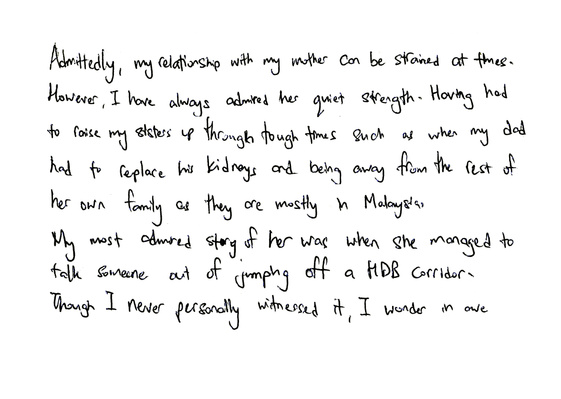 Admittedly, my relationship with my mother can be strained at times.
However, I have always admired her quiet strength. Having had
to raise my sisters up through tough times such as when my dad
had to replace his kidneys and being away from the rest of
her own family as they are mostly in Malaysia.
My most admired story of her was when she managed to
talk someone out of jumping off a HDB corridor.
Though I never personally witnessed it, I wonder in awe